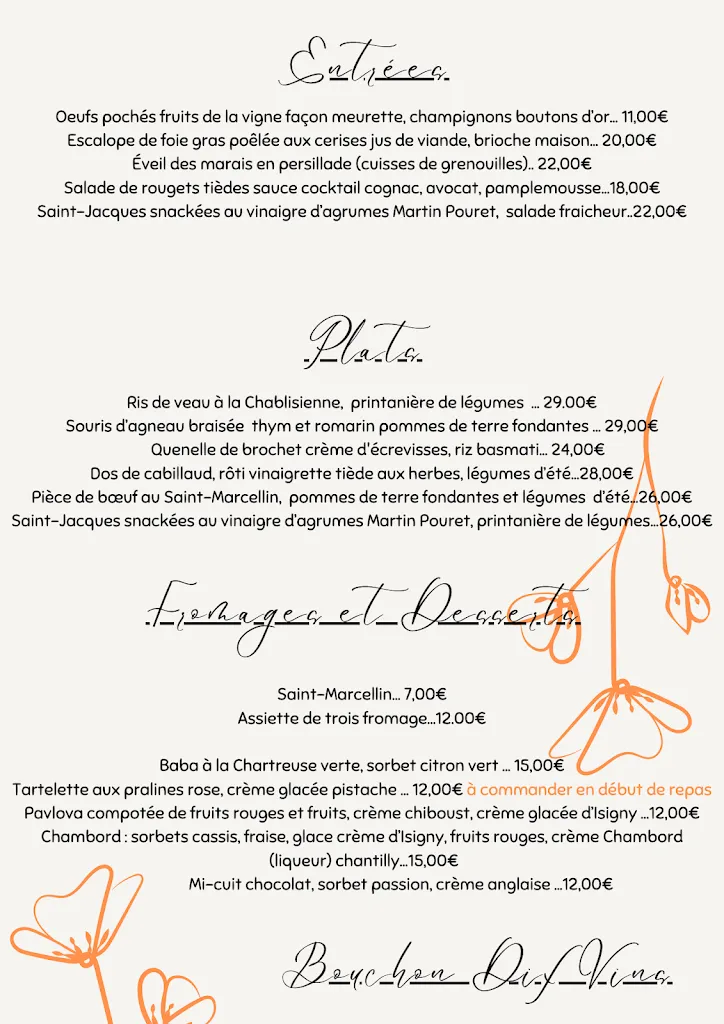 Entrées
Oeufs pochés fruits de la vigne façon meurette, champignons boutons d'or... 11,00€
Escalope de foie gras poêlée aux cerises jus de viande, brioche maison... 20,00€
Éveil des marais en persillade (cuisses de grenouilles).. 22,00€
Salade de rougets tièdes sauce cocktail cognac, avocat, pamplemousse...18,00€
Saint-Jacques snackées au vinaigre d'agrumes Martin Pouret, salade fraicheur..22,00€
Plats
Ris de veau à la Chablisienne, printanière de légumes ... 29.00€
Souris d'agneau braisée thym et romarin pommes de terre fondantes ... 29,00€
Quenelle de brochet crème d'écrevisses, riz basmati... 24,00€
Dos de cabillaud, rôti vinaigrette tiède aux herbes, légumes d'été...28,00€
Pièce de bœuf au Saint-Marcellin, pommes de terre fondantes et légumes d'été...26,00€
Saint-Jacques snackées au vinaigre d'agrumes Martin Pouret, printanière de légumes...26,00€
Fromages et Desserts
Saint-Marcellin... 7,00€
Assiette de trois fromage...12.00€
Baba à la Chartreuse verte, sorbet citron vert ... 15,00€
Tartelette aux pralines rose, crème glacée pistache ... 12,00€ à commander en début de repas
Pavlova compotée de fruits rouges et fruits, crème chiboust, crème glacée d'Isigny ...12,00€
Chambord : sorbets cassis, fraise, glace crème d'Isigny, fruits rouges, crème Chambord
(liqueur) chantilly...15,00€
Mi-cuit chocolat, sorbet passion, crème anglaise ...12,00€
Bouchon Dix Vins